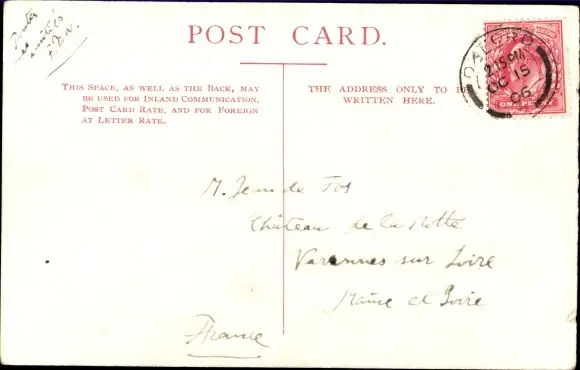 Toutes
mes
amitiés
POST CARD.
THIS SPACE, AS WELL AS THE BACK, MAY
BE USED FOR INLAND COMMUNICATION,
POST CARD RATE, AND FOR FOREIGN
AT LETTER RATE.
THE ADDRESS ONLY TO BE
WRITTEN HERE.
2.15 PM
OC 15
06
ONE PENNY
M. Jean de Fos
Château de la Motte
Varennes sur Loire
Maine et Loire
France